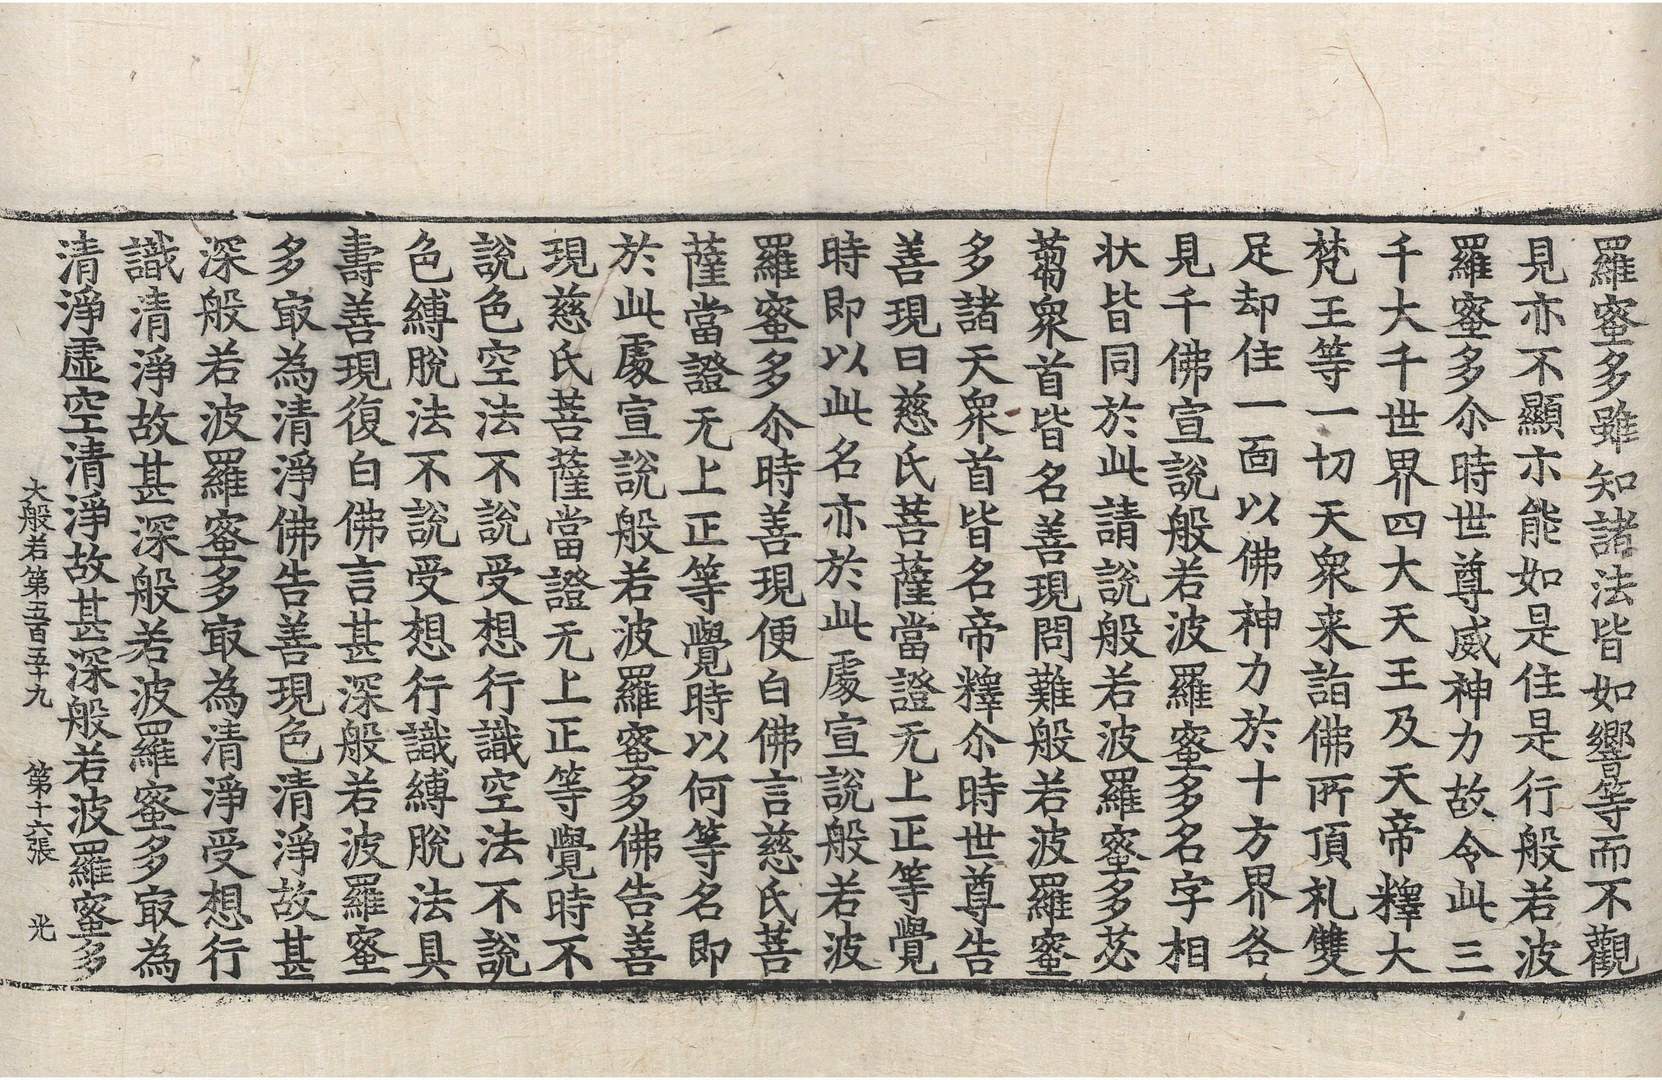 羅蜜多雖知諸法皆如響等而不觀
見亦不顯示能如是住是行般若波
羅蜜多尒時世尊威神力故令此三
千大千世界四大天王及天帝釋大
梵王等一切天衆来詣佛所頂礼雙
足却住一面以佛神力於十方界各
見千佛宣說般若波羅蜜多名字相
状皆同於此請說般若波羅蜜多苾
蒭衆首皆名善現問難般若波羅蜜
多諸天衆首皆名帝釋尒時世尊告
善現曰慈氏菩薩當證无上正等覺
時即以此名亦於此處宣說般若波
羅蜜多尒時善現便白佛言慈氏菩
薩當證无上正等覺時以何等名即
於此處宣說般若波羅蜜多佛告善
現慈氏菩薩當證无上正等覺時不
說色空法不說受想行識空法不說
色縛脫法不說受想行識縛脫法具
壽善現復白佛言甚深般若波羅蜜
多㝡為清淨佛告善現色清淨故甚
深般若波羅蜜多㝡為清淨受想行
識清淨故甚深般若波羅蜜多㝡為
清淨虛空清淨故甚深般若波羅蜜多
大般若第五百五十九 第十六張 光